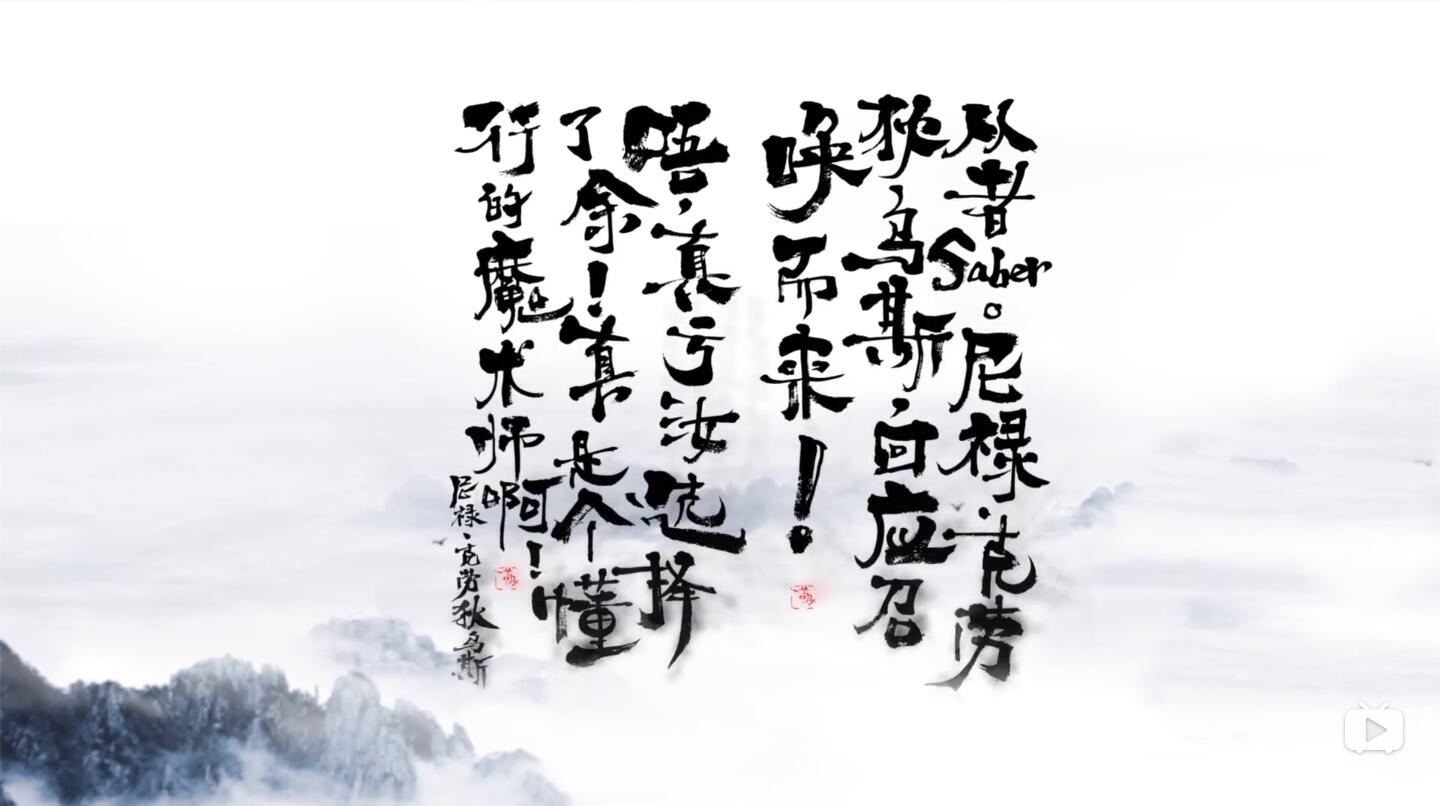 从者Saber。尼禄·克劳
狄乌斯,回应召
唤而来!
唔,真亏汝选择
了余!真是个懂
行的魔术师啊!
尼禄·克劳狄乌斯